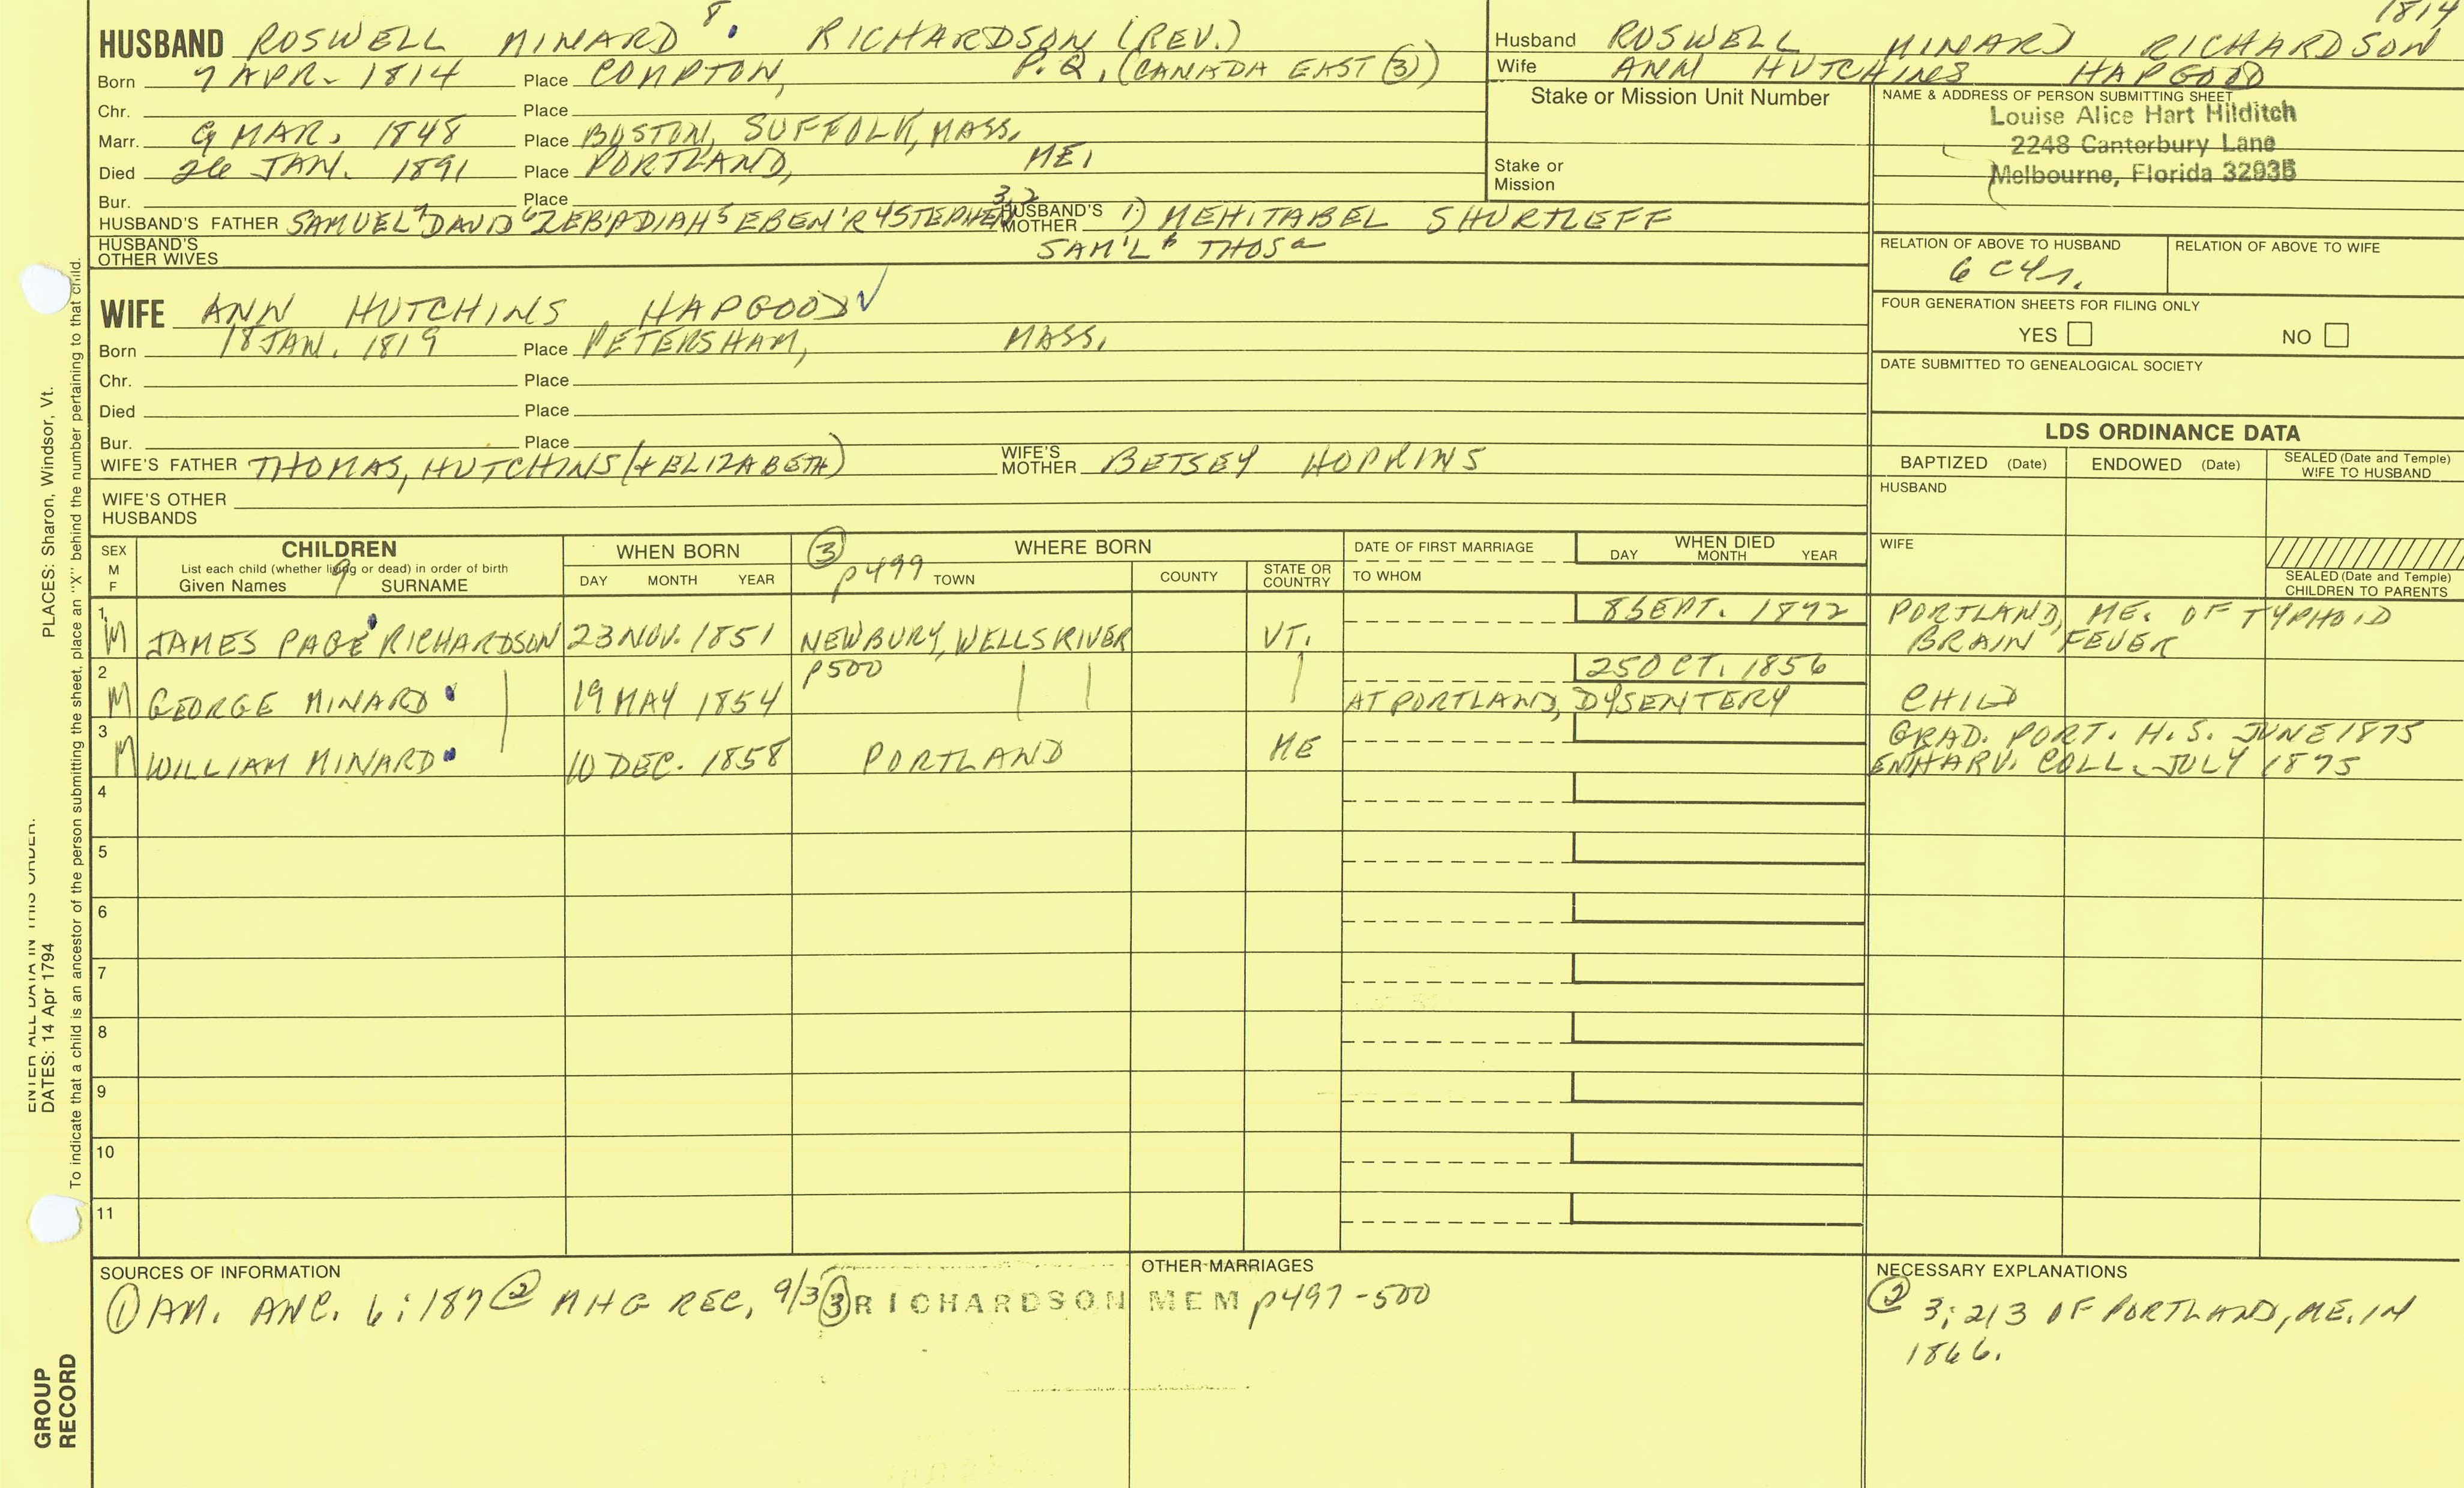 1814
HUSBAND ROSWELL MINARD 8. RICHARDSON (REV.)
Born 7 APR. 1814 Place COMPTON, P.Q. (CANADA EAST (3))
Chr. Place
Marr. 9 MAR. 1848 Place BOSTON, SUFFOLK, MASS.
Died 26 JAN. 1891 Place PORTLAND, ME.
Bur. Place
HUSBAND'S FATHER SAMUEL 7 DAVID 6 ZEBADIAH 5 EBEN'R 4 STEPHEN 3,2 HUSBAND'S MOTHER 1) MEHITABEL SHURTLEFF
HUSBAND'S OTHER WIVES SAM'L b THOS a
Husband ROSWELL MINARD RICHARDSON
Wife ANN HUTCHINS HAPGOOD
Stake or Mission Unit Number
Stake or Mission
NAME & ADDRESS OF PERSON SUBMITTING SHEET
Louise Alice Hart Hilditch
2248 Canterbury Lane
Melbourne, Florida 32935
RELATION OF ABOVE TO HUSBAND RELATION OF ABOVE TO WIFE
6 C 4 r.
FOUR GENERATION SHEETS FOR FILING ONLY
YES NO
DATE SUBMITTED TO GENEALOGICAL SOCIETY
WIFE ANN HUTCHINS HAPGOOD ✓
Born 18 JAN. 1819 Place PETERSHAM, MASS.
Chr. Place
Died Place
Bur. Place
WIFE'S FATHER THOMAS, HUTCHINS (+ ELIZABETH) WIFE'S MOTHER BETSEY HOPKINS
WIFE'S OTHER HUSBANDS
LDS ORDINANCE DATA
BAPTIZED (Date) ENDOWED (Date) SEALED (Date and Temple) WIFE TO HUSBAND
HUSBAND
WIFE
SEALED (Date and Temple) CHILDREN TO PARENTS
SEX M F
CHILDREN
List each child (whether living or dead) in order of birth
Given Names 9 SURNAME
WHEN BORN
DAY MONTH YEAR
(3) p499
WHERE BORN
TOWN COUNTY STATE OR COUNTRY
DATE OF FIRST MARRIAGE
TO WHOM
WHEN DIED
DAY MONTH YEAR
1 M JAMES PAGE RICHARDSON 23 NOV. 1851 NEWBURY, WELLS RIVER VT. 8 SEPT. 1872 PORTLAND, ME. OF TYPHOID
BRAIN FEVER
2 M GEORGE MINARD 19 MAY 1854 P500 25 OCT. 1856
AT PORTLAND, DYSENTERY CHILD
3 M WILLIAM MINARD 10 DEC. 1858 PORTLAND ME GRAD. PORT. H.S. JUNE 1875
ENT HARV. COLL. JULY 1875
4
5
6
7
8
9
10
11
SOURCES OF INFORMATION
(1) AM. ANC. 6:187 (2) NHG REC, 9/3 (3) RICHARDSON MEM p497-500
OTHER MARRIAGES
NECESSARY EXPLANATIONS
(2) 3; 213 OF PORTLAND, ME. IN
1866.
PLACES: Sharon, Windsor, Vt.
ENTER ALL DATA IN THIS ORDER:
DATES: 14 Apr 1794
To indicate that a child is an ancestor of the person submitting the sheet, place an "X" behind the number pertaining to that child.
GROUP
RECORD